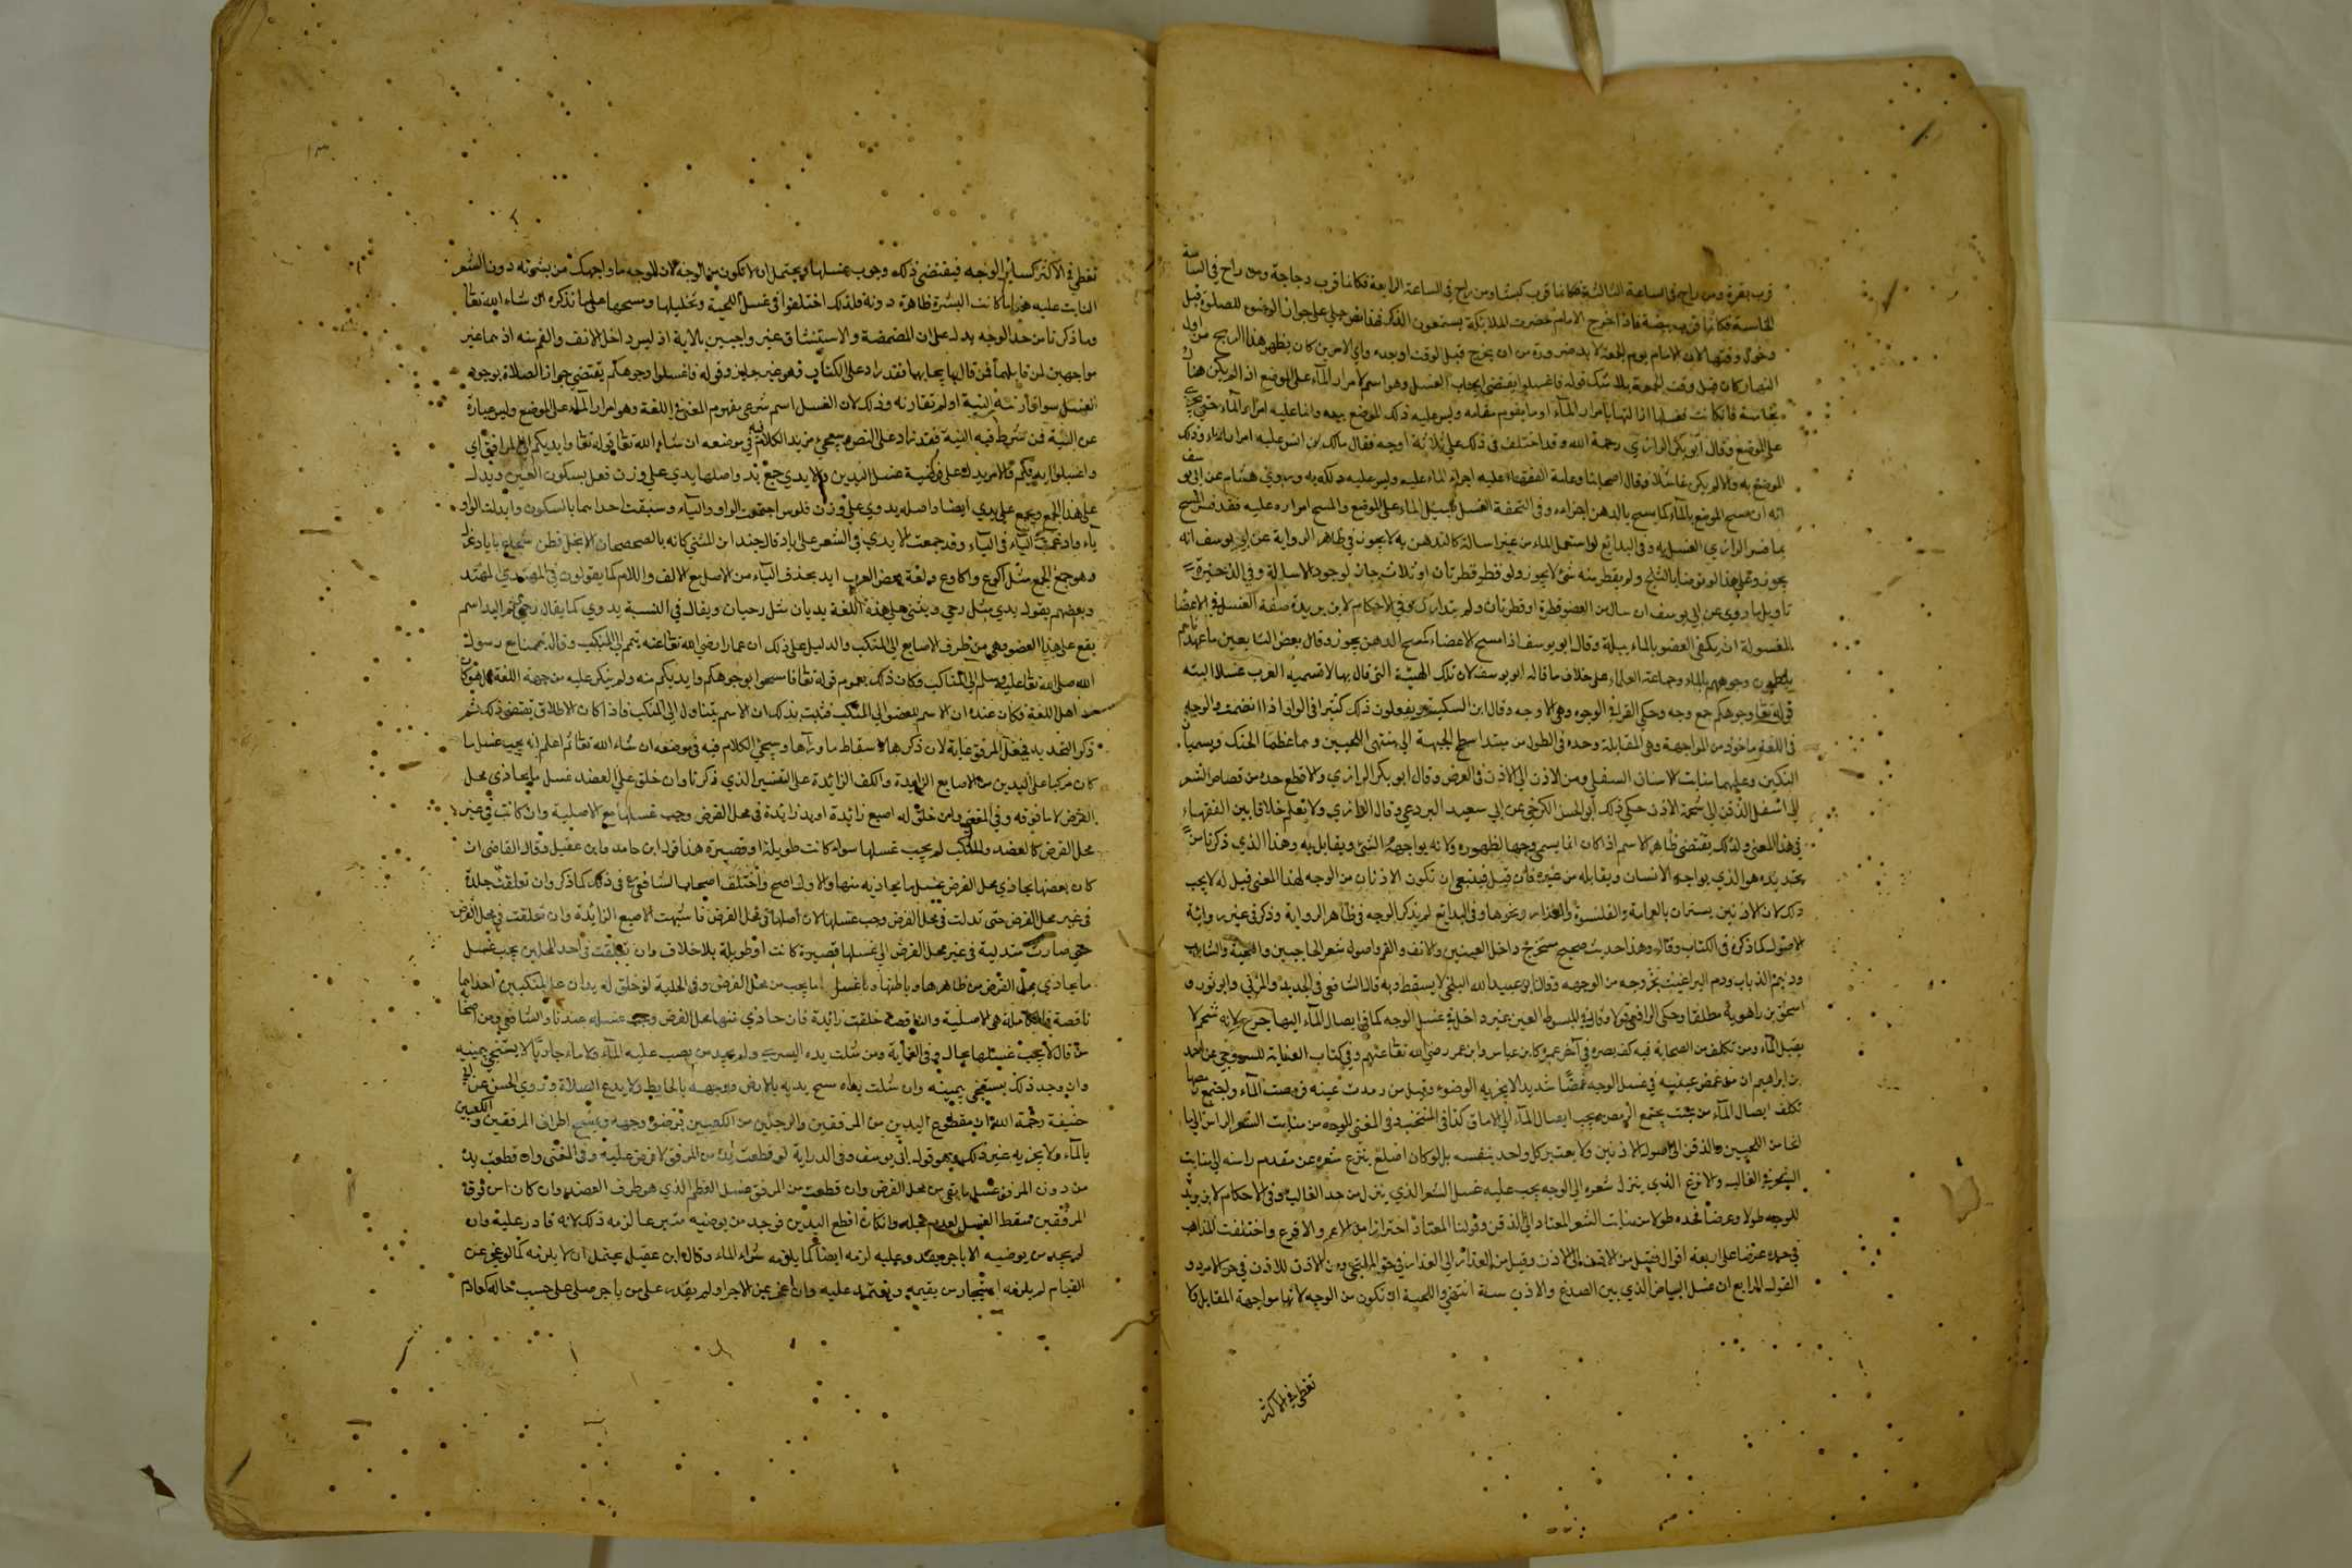 قرب بقرة ومن راح في الساعة الثالثة فكانما قرب كبشا ومن راح في الساعة الرابعة فكانما قرب دجاجة ومن راح في الساعة
الخامسة فكانما قرب بيضة فاذا خرج الامام حضرت الملائكة يستمعون الذكر فهذا نص جلي على جواز الوضوء للصلوة قبل
دخول وقتها لان الامام يوم الجمعة لا بد ضرورة من ان يخرج قبل الوقت او بعده واي الامرين كان يظهر هذا الريح من اول
النهار كان قبل وقت الجمعة بلا شك قوله فاغسلوا يقتضي ايجاب الغسل وهو اسم لامرار المآء على الموضع اذا لم يكن هناك
نجاسة فان كانت فغسلها ازالتها بامرار المآء او ما يقوم مقامه وليس عليه ذلك الموضع بيده وانما عليه امرار المآء حتى يجري
على الموضع وقال ابو بكر الرازي رحمة الله وقد اختلف في ذلك على ثلاثة اوجه فقال مالك بن انس عليه امرار الماء وذلك
الموضع به والا لم يكن غاسلا وقال اصحابنا وعامة الفقهاء عليه اجراء الماء عليه وليس عليه دلكه به وروي هشام عن ابي يوسف
انه ان مسح الموضع بالمآء كما يمسح بالدهن اجزاه وفي التحفة الغسل تسييل الماء على الموضع والمسح امراره عليه فقد فسر المسح
بما فسر الرازي الغسل به وفي البدائع لو استعمل الماء من غير اسالة كالتدهن به لا يجوز في ظاهر الرواية عن ابي يوسف انه
يجوز وعلى هذا لو توضا بالثلج ولم يقطر منه شئ لا يجوز ولو قطر قطرتان او ثلاث جاز لوجود الاسالة وفي الذخيرة
تاويل ما روي عن ابي يوسف ان سال من العضو قطرة او قطرتان ولم يتدارك وفي الاحكام لابن بريدة صفة الغسل في الاعضا
المغسولة ان يكفي العضو بالماء ببلة وقال ابو يوسف اذا مسح الاعضاء كمسح الدهن يجوز وقال بعض التابعين ما عهدناهم
يلطمون وجوههم بالماء وجماعة العلماء على خلاف ما قاله ابو يوسف لان تلك الهيئة التي قال بها لا تسميه العرب غسلا البته
قوله تعا وجوهكم جمع وجه وحكي الفرا في الوجوه وهي الاوجه وقال ابن السكيت ويفعلون ذلك كثيرا في الواو اذا انضمت والوجه
في اللغة ماخوذ من المواجهة وهي المقابلة وحده في الطول من مبتدا سطح الجبهة الى منتهى اللحيين وهما عظما الحنك ويسميان
الفكين وعليهما منابت الاسنان السفلى ومن الاذن الى الاذن في العرض وقال ابو بكر الرازي ولا قطع حده من قصاص الشعر
الى اسفل الذقن الى شحمة الاذن حكي ذلك ابو الحسن الكرخي عن ابي سعيد البردعي وقال الرازي ولا نعلم خلافا بين الفقهاء
في هذا المعنى وكذلك يقتضي ظاهر الاسم اذا كان انما يسمى وجها لظهوره ولانه يواجه الشئ ويقابل به وهذا الذي ذكرنا من
تحديده هو الذي يواجه الانسان ويقابله من غيره فان قيل فينبغي ان تكون الاذنان من الوجه لهذا المعنى قيل له لا يجب
ذلك لان الاذنين يستران بالعمامة والقلنسوة ونحوها وفي البدائع لم يذكر الوجه في ظاهر الرواية وذكر في غير رواية
الاصول كما ذكره في الكتاب وقال وهذا حد صحيح مستخرج داخل العينين والانف والفم واصول شعر الحاجبين واللحية والشارب
وونيم الذباب ودم البراغيث بخروجه من الوجه وقال ابو عبيد الله البلخي لا يسقط وبه قال الشافعي في الجديد والمزني وابو ثور و
اسحق بن راهوية مطلقا وحكي الرافعي قولا وقال في المبسوط العين غير داخلة في غسل الوجه كما في ايصال المآء اليها حرج لانه شحم لا
يقبل المآء ومن تكلف من الصحابة فيه كف بصره في آخر عمره كابن عباس وابن عمر رضي الله تعا عنهم وفي كتاب الغاية للسروجي عن احمد
بن ابراهيم ان من غمض عينيه في غسل الوجه غمضا شديدا لا يجزيه الوضوء وقيل من رمدت عينه فرمصت
تكلف ايصال المآء من تحت مجتمع الرمص ويجب ايصال المآء الى الاماق كذا في المجتبى وفي المغنى الوجه من منابت الشعر الراس الى ما
انحا من اللحيين والذقن الى اصول الاذنين ولا يعتبر كل واحد بنفسه بل لو كان اصلع ينزع شعره عن مقدم راسه الى منابت
الشعر في الغالب والاقرع الذي ينزل شعره الى الوجه يجب عليه غسل الشعر الذي ينزل من حد الغالب وفي الاحكام لابن بريدة
للوجه طولا وعرضا فحده طولا من منابت الشعر المعتاد الى الذقن وقولنا المعتاد احترازا من الاغم والاقرع واختلفت المذاهب
في حده عرضا على اربعة اقوال فقيل من الاذن الى الاذن وقيل من العذار الى العذار في حق الملتحي ومن الاذن للاذن في حق الامرد و
القول الرابع ان غسل البياض الذي بين الصدغ والاذن سنة انتهى واللحية ان تكون من الوجه لانها مواجهة المقابل ولا
تغطي في الاكثر
تغطي في الاكثر كساير الوجه فيقتضي ذلك وجوب غسلها ويحتمل ان لا تكون من الوجه لان الوجه ما واجهك من بشرته دون الشعر
النابت عليه بعد ما كانت البشرة ظاهرة دونه فلذلك اختلفوا في غسل اللحية وتخليلها ومسحها على ما نذكره ان شاء الله تعا
وما ذكرنا من حد الوجه يدل على ان المضمضة والاستنشاق غير واجبين بالاية اذ ليس داخل الانف والفم منه اذ هما غير
مواجهين لمن قابلهما فمن قال بايجابهما فقد زاد على الكتاب وهو غير جايز وقوله فاغسلوا وجوهكم يقتضي جواز الصلاة بوجود
الغسل سوا قارنته النية او لم تقارنه وذلك لان الغسل اسم شرعي مفهوم المعنى في اللغة وهو امرار الماء على الموضع وليس عبارة
عن النية فمن شرط فيه النية فقد زاد على النص وسيجئ مزيد الكلام فيه في موضعه ان شاء الله تعا قوله تعا وايديكم الى المرافق اي
واغسلوا ايديكم فالامر يدل على فرضية غسل اليدين والايدي جمع يد واصلها يدي على وزن فعل بسكون العين ويدل
على هذا الجمع ويجمع على يدي ايضا واصله يدوي على وزن فلوس اجتمعت الواو والياء وسبقت احداهما بالسكون وابدلت الواو
ياء وادغمت الياء في الياء وقد جمعت الايدي في الشعر على اياد قال جندل بن المثنى كانه بالصحصحان الانجل قطن سخام بايادي غزل
وهو جمع الجمع مثل اكرع واكارع ولغة بعض العرب ايد بحذف الياء من الاصل مع الالف واللام كما يقولون في المهتدي المهتد
وبعضهم يقول يدي مثل رحي ويثنى على هذه اللغة يديان مثل رحيان ويقال في النسبة يدوي كما يقال رحوي ثم اليد اسم
يقع على هذا العضو وهي من طرف الاصابع الى المنكب والدليل على ذلك ان عمارا رضي الله تعا عنه تيمم الى المنكب وقال تيممنا مع رسول
الله صلى الله تعا عليه وسلم الى المناكب وكان ذلك بعموم قوله تعا فامسحوا بوجوهكم وايديكم منه ولم ينكر عليه من جهة اللغة بل هو كان
من اهل اللغة فكان عنده ان الاسم للعضو الى المنكب فثبت بذلك ان الاسم يتناول الى المنكب فاذا كان الاطلاق يقتضي ذلك ثم
ذكر التحديد فجعل المرفق غاية لان ذكرها لاسقاط ما ورآها وسيجئ الكلام فيه في موضعه ان شاء الله تعا ثم اعلم انه يجب غسل ما
كان مركبا على اليدين من الاصابع الزايدة والكف الزائدة على التفسير الذي ذكرنا وان خلق على العضد غسل ما يحاذي محل
الفرض لا ما فوقه وفي المغني وان خلق له اصبع زائدة او يد زائدة في محل الفرض وجب غسلها مع الاصلية وان كانت في غير
محل الفرض كالعضد والمنكب لم يجب غسلها سواء كانت طويلة او قصيرة هذا قول ابن حامد وابن عقيل وقال القاضي ان
كان بعضها يحاذي محل الفرض يغسل ما يحاذيه منها والاول اصح واختلف اصحاب الشافعي في ذلك كما ذكر وان تعلقت جلدة
في غير محل الفرض حتى تدلت في محل الفرض وجب غسلها لان اصلها في محل الفرض فاشبهت الاصبع الزائدة وان تعلقت في محل الفرض
حتى صارت متدلية في غير محل الفرض لم يجب غسلها قصيرة كانت او طويلة بلا خلاف وان تعلقت في احد المحلين يجب غسل
ما يحاذي محل الفرض من ظاهرها وباطنها وفي الحلية لو خلق له يدان على المنكبين احداهما
ناقصة فالكاملة هي الاصلية والناقصة خلقت زائدة فان حاذي منها محل الفرض وجب غسله عندنا والشافعي ومن اصحابه
من قال لا يجب غسلها بحال وفي الغاية ومن شلت يده اليسرى ولم يجد من يصب عليه المآء ولا ماء جاريا لا يستنجي بيمينه
وان وجد ذلك يستنجي بيمينه وان شلت يداه مسح يديه بالارض ووجهه بالحايط ولا يدع الصلاة وروي الحسن عن ابي
حنيفة رحمة الله ان مقطوع اليدين من المرفقين والرجلين من الكعبين يتوضئ وجهه ويمسح اطراف المرفقين والكعبين
بالماء ولا يجزيه غير ذلك وهو قول ابي يوسف وفي الدراية لو قطعت يده من المرفق لا فرض عليه وفي المغنى وان قطعت يده
من دون المرفق غسل ما بقي من محل الفرض وان قطعت من المرفق غسل العظم الذي هو طرف العضد وان كان من فوق
المرفقين سقط الغسل لعدم محله وان كان اقطع اليدين فوجد من يوضيه متبرعا لزمه ذلك لانه قادر عليه وان
لم يجد من يوضيه الا باجر يقدر عليه لزمه ايضا كما يلزمه شراء الماء وقال ابن عقيل يحتمل ان لا يلزمه كما لو عجز عن
القيام لم يلزمه استئجار من يقيمه ويعتمد عليه وان عجز عن الاجر او لم يقدر على من ياجر صلى على حسب حاله كعادم